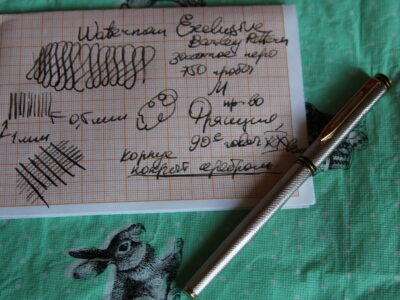 Waterman Exclusive
Barley Pattern
золотое перо
750 пробы
М
F 0,5 мм
1 мм
пр-во
Франция,
90е годов XX века
корпус
покрыт серебром